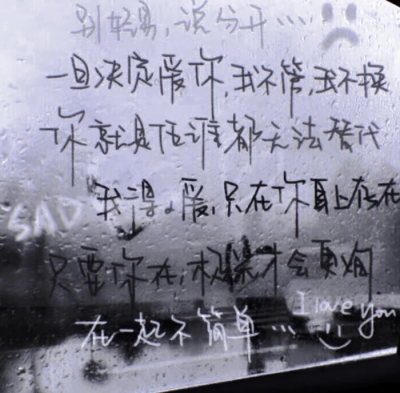 别轻易,说分开...
一旦决定爱你,我不管,我不换
你就是任谁都无法替代
我得爱,只在你身上存在
SAD
只要你在,极光才会真
I love you
在一起不简单...